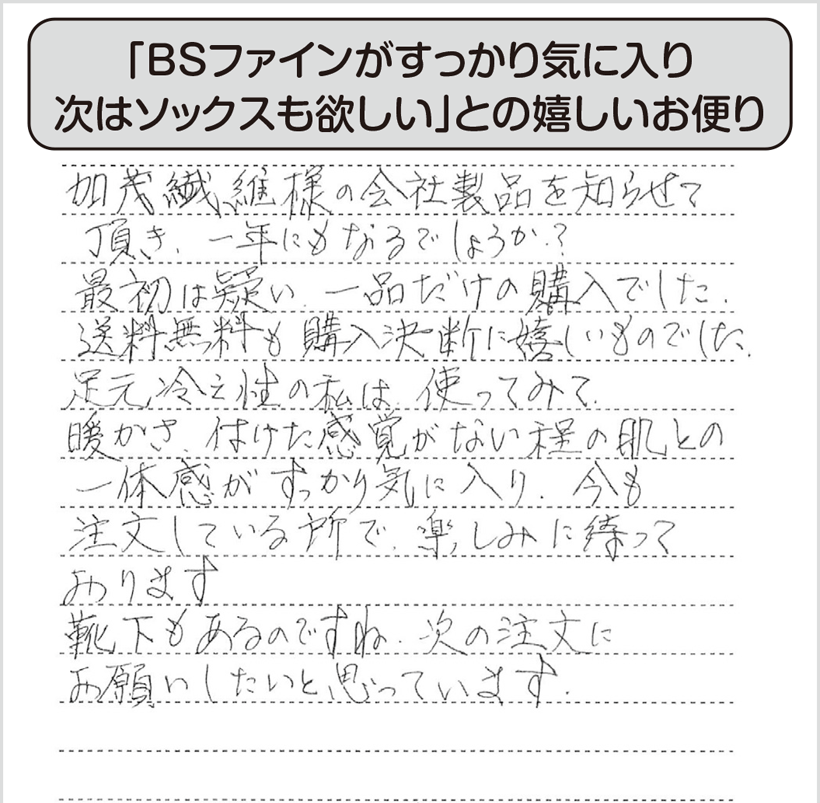 「BSファインがすっかり気に入り
次はソックスも欲しい」との嬉しいお便り
加茂繊維様の会社製品を知らせて
頂き、一年にもなるでしょうか?
最初は疑い、一品だけの購入でした。
送料無料も購入決断に嬉しいものでした。
足元冷え性の私は、使ってみて、
暖かさ、付けた感覚がない程の肌との
一体感がすっかり気に入り、今も
注文している所で、楽しみに待って
おります
靴下もあるのですね、次の注文に
お願いしたいと思っています。